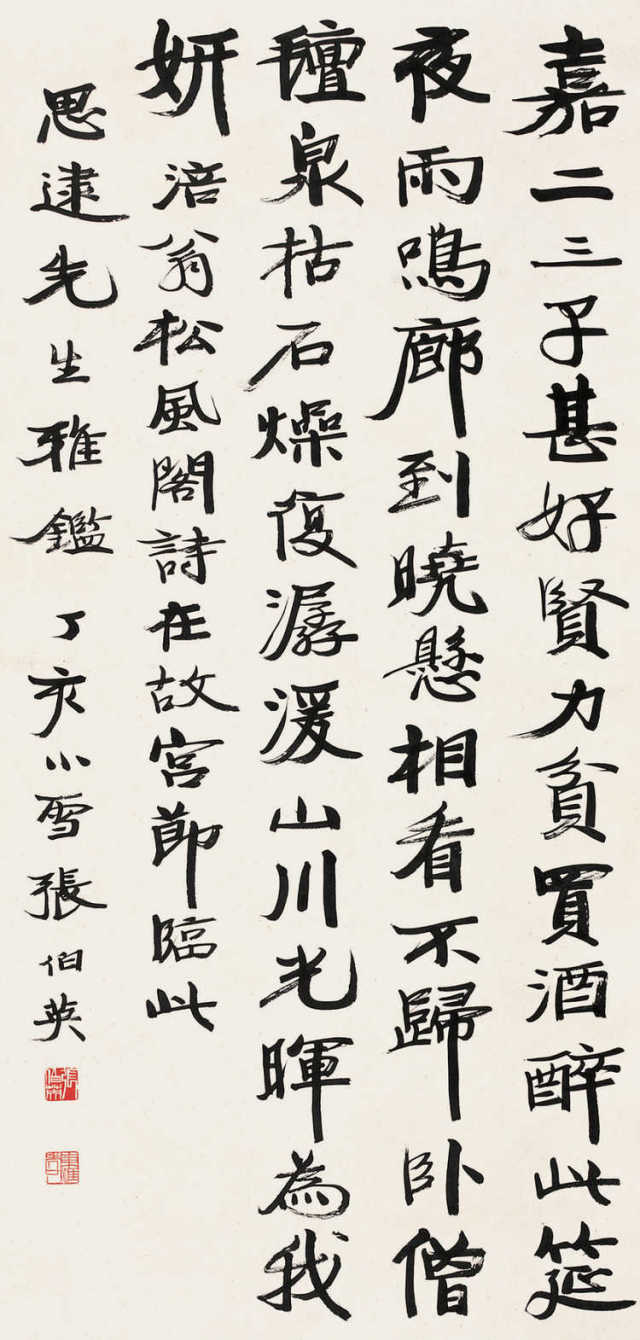 嘉二三子甚好賢力貧買酒醉此筵
夜雨鳴廊到曉懸相看不歸卧僧
氈泉枯石燥復潺湲山川光暉為我
妍涪翁松風閣詩在故宮節臨此
思逮先生雅鑑丁亥小雪張伯英